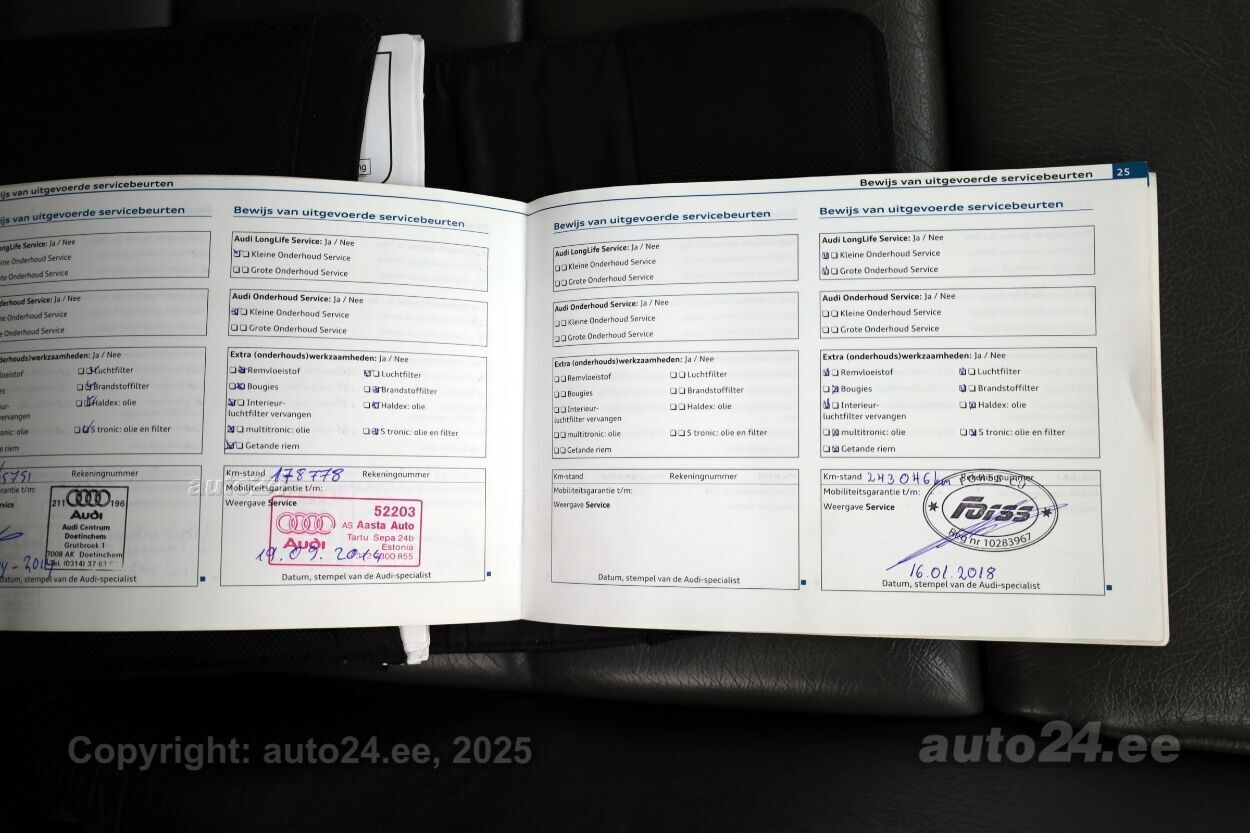 ng
js van uitgevoerde servicebeurten
js van uitgevoerde servicebeurten
ongLife Service: Ja / Nee
eine Onderhoud Service
ote Onderhoud Service
derhoud Service: Ja / Nee
ine Onderhoud Service
te Onderhoud Service
derhouds)werkzaamheden: Ja / Nee
loeistof
Luchtfilter
es
Brandstoffilter
ur-
Haldex: olie
vervangen
onic: olie
S tronic: olie en filter
e riem
5751
Rekeningnummer
rantie t/m:
ervice
211 196
Audi
Audi Centrum
Doetinchem
Grutbroek 1
7008 AK Doetinchem
tel (0314) 37 61
atum, stempel van de Audi-specialist
Bewijs van uitgevoerde servicebeurten
Audi LongLife Service: Ja / Nee
Kleine Onderhoud Service
Grote Onderhoud Service
Audi Onderhoud Service: Ja / Nee
Kleine Onderhoud Service
Grote Onderhoud Service
Extra (onderhouds)werkzaamheden: Ja / Nee
Remvloeistof
Luchtfilter
Bougies
Brandstoffilter
Interieur-
luchtfilter vervangen
Haldex: olie
multitronic: olie
S tronic: olie en filter
Getande riem
Km-stand 178778
Rekeningnummer
Mobiliteitsgarantie t/m:
Weergave Service
52203
AS Aasta Auto
Tartu Sepa 24b
Estonia
Audi
19.09.2014
Datum, stempel van de Audi-specialist
Bewijs van uitgevoerde servicebeurten 25
Bewijs van uitgevoerde servicebeurten
Audi LongLife Service: Ja / Nee
Kleine Onderhoud Service
Grote Onderhoud Service
Audi Onderhoud Service: Ja / Nee
Kleine Onderhoud Service
Grote Onderhoud Service
Extra (onderhouds)werkzaamheden: Ja / Nee
Remvloeistof
Luchtfilter
Bougies
Brandstoffilter
Interieur-
luchtfilter vervangen
Haldex: olie
multitronic: olie
S tronic: olie en filter
Getande riem
Km-stand
Rekeningnummer
Mobiliteitsgarantie t/m:
Weergave Service
Datum, stempel van de Audi-specialist
Bewijs van uitgevoerde servicebeurten
Audi LongLife Service: Ja / Nee
Kleine Onderhoud Service
Grote Onderhoud Service
Audi Onderhoud Service: Ja / Nee
Kleine Onderhoud Service
Grote Onderhoud Service
Extra (onderhouds)werkzaamheden: Ja / Nee
Remvloeistof
Luchtfilter
Bougies
Brandstoffilter
Interieur-
luchtfilter vervangen
Haldex: olie
multitronic: olie
S tronic: olie en filter
Getande riem
Km-stand 243046 km
Rekeningnummer
Mobiliteitsgarantie t/m:
Weergave Service
Forss
Reg nr 10283967
16.01.2018
Datum, stempel van de Audi-specialist
Copyright: auto24.ee, 2025
auto24.ee